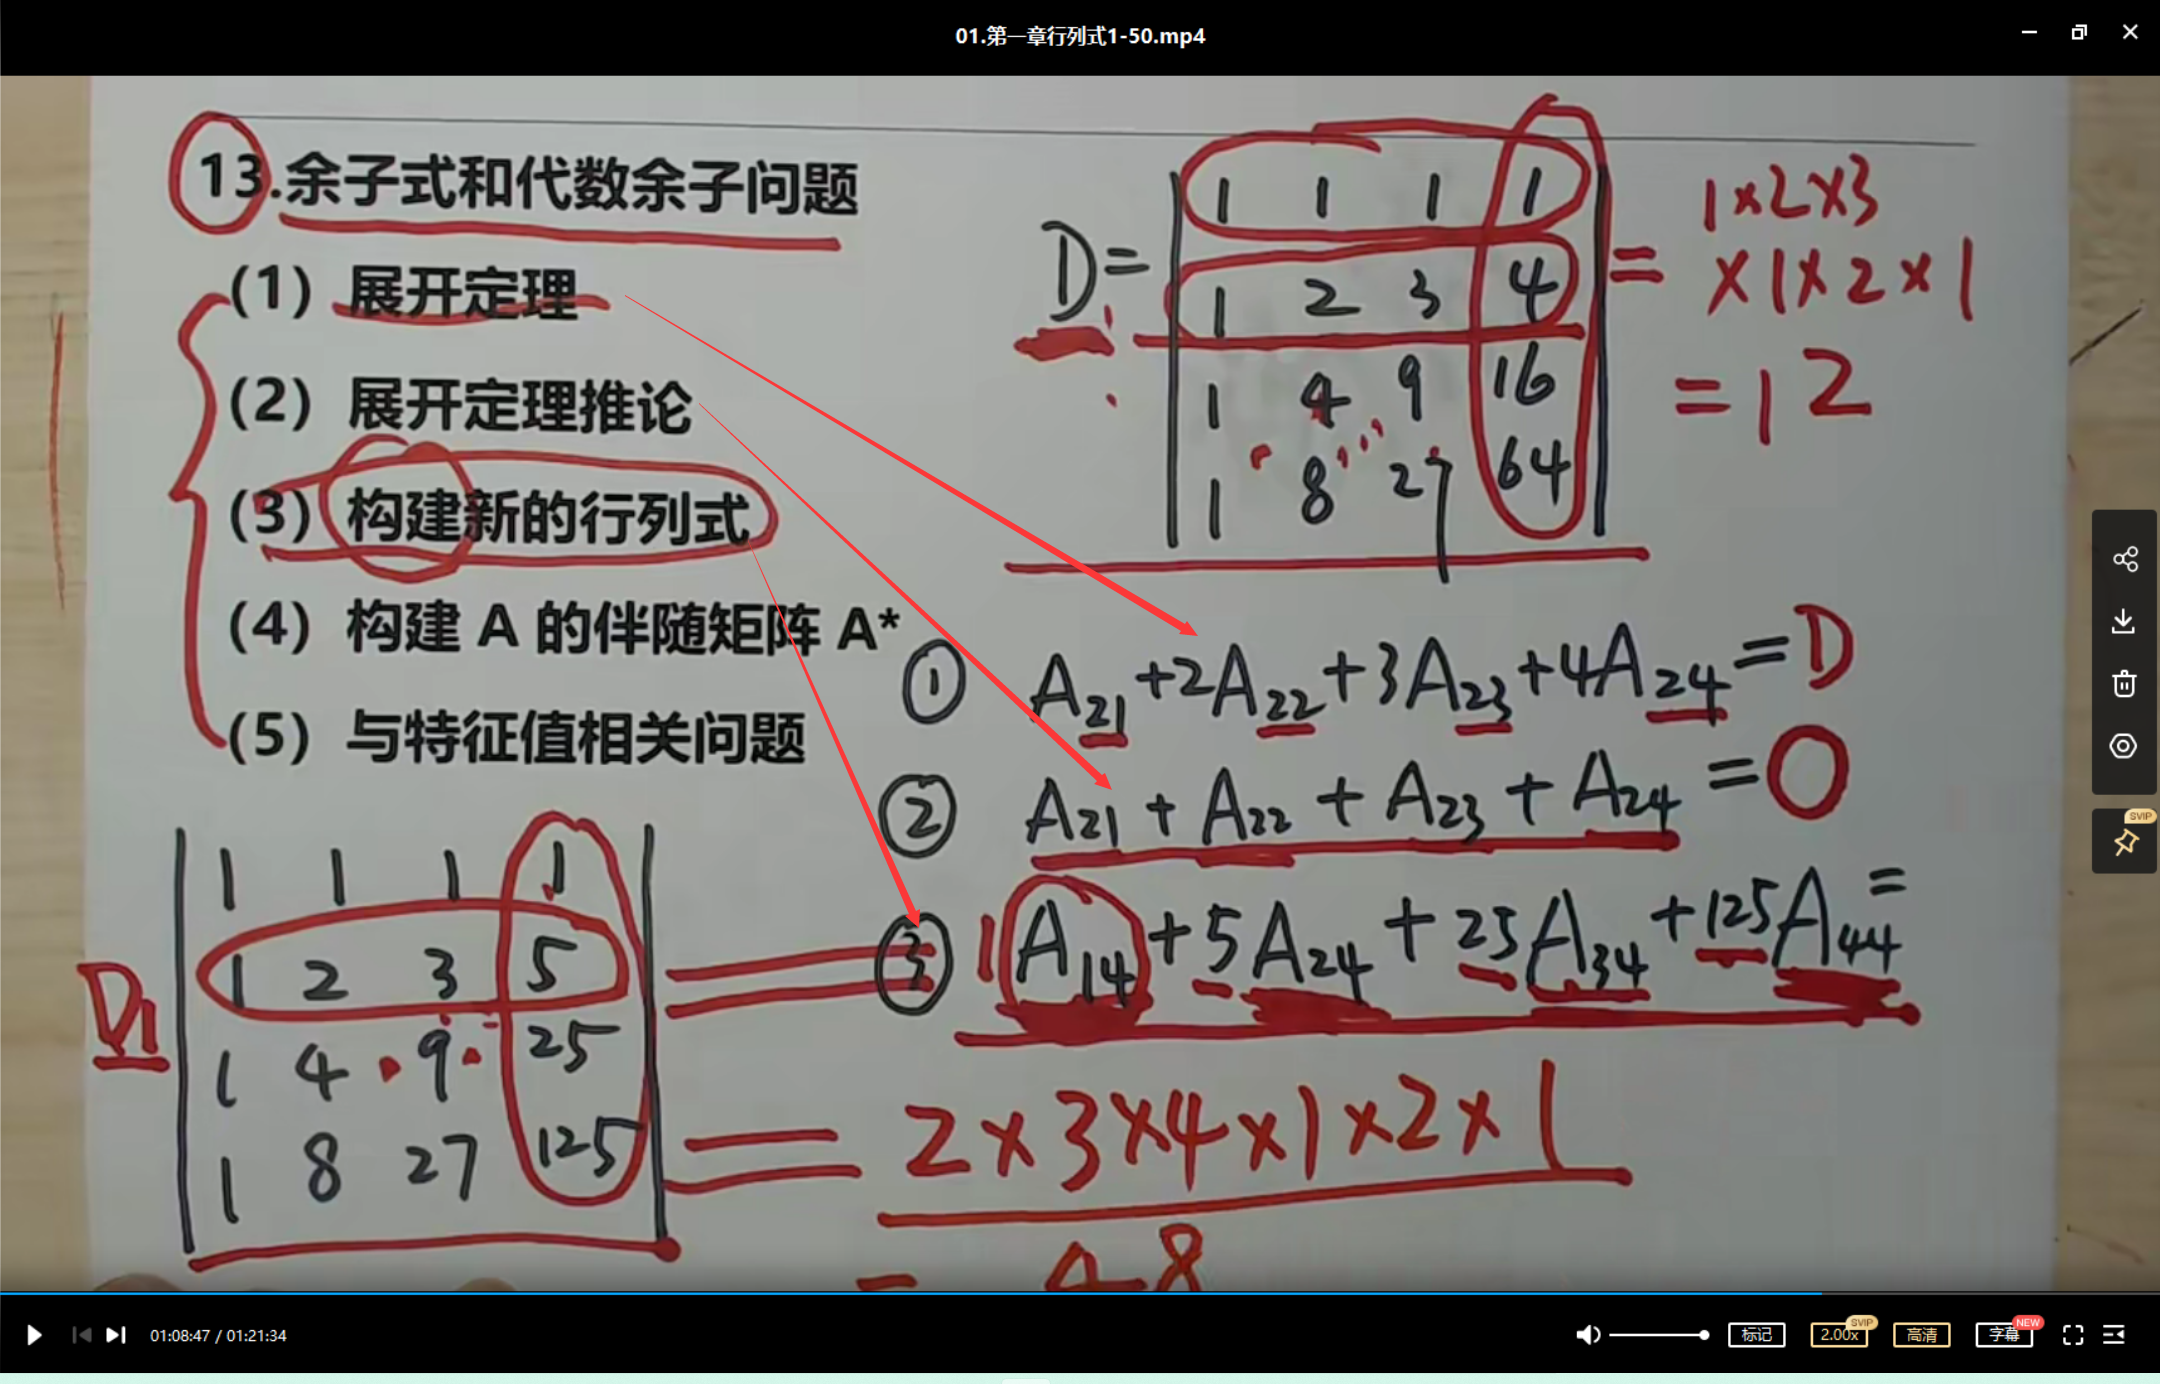 01.第一章行列式1-50.mp4
13.余子式和代数余子问题
(1) 展开定理
(2) 展开定理推论
(3) 构建新的行列式
(4) 构建 A 的伴随矩阵 A*
(5) 与特征值相关问题
D=
1 1 1 1
1 2 3 4
1 4 9 16
1 8 27 64
= 1×2×3
×1×2×1
=12
① A21+2A22+3A23+4A24=D
② A21+A22+A23+A24=0
③ 1A14+5A24+25A34+125A44=
D1
1 1 1 1
1 2 3 5
1 4 9 25
1 8 27 125
= 2×3×4×1×2×1
= 48
SVIP
01:08:47 / 01:21:34
标记
2.00x
SVIP
高清
字幕
NEW